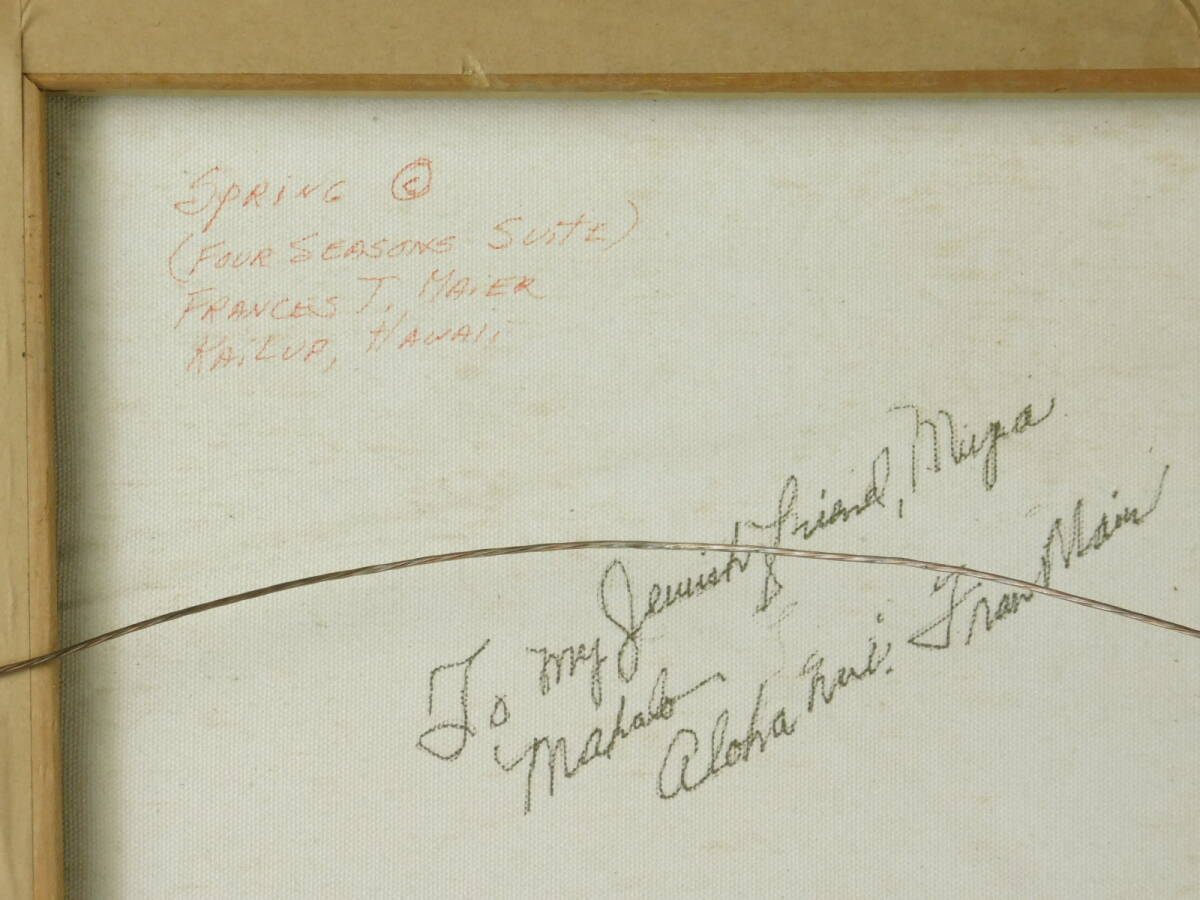 SPRING ©
(FOUR SEASONS SUITE)
FRANCES T. MAIER
KAILUA, HAWAII
To my Jewish friend,
Mahalo
Aloha nui. Fran Maier